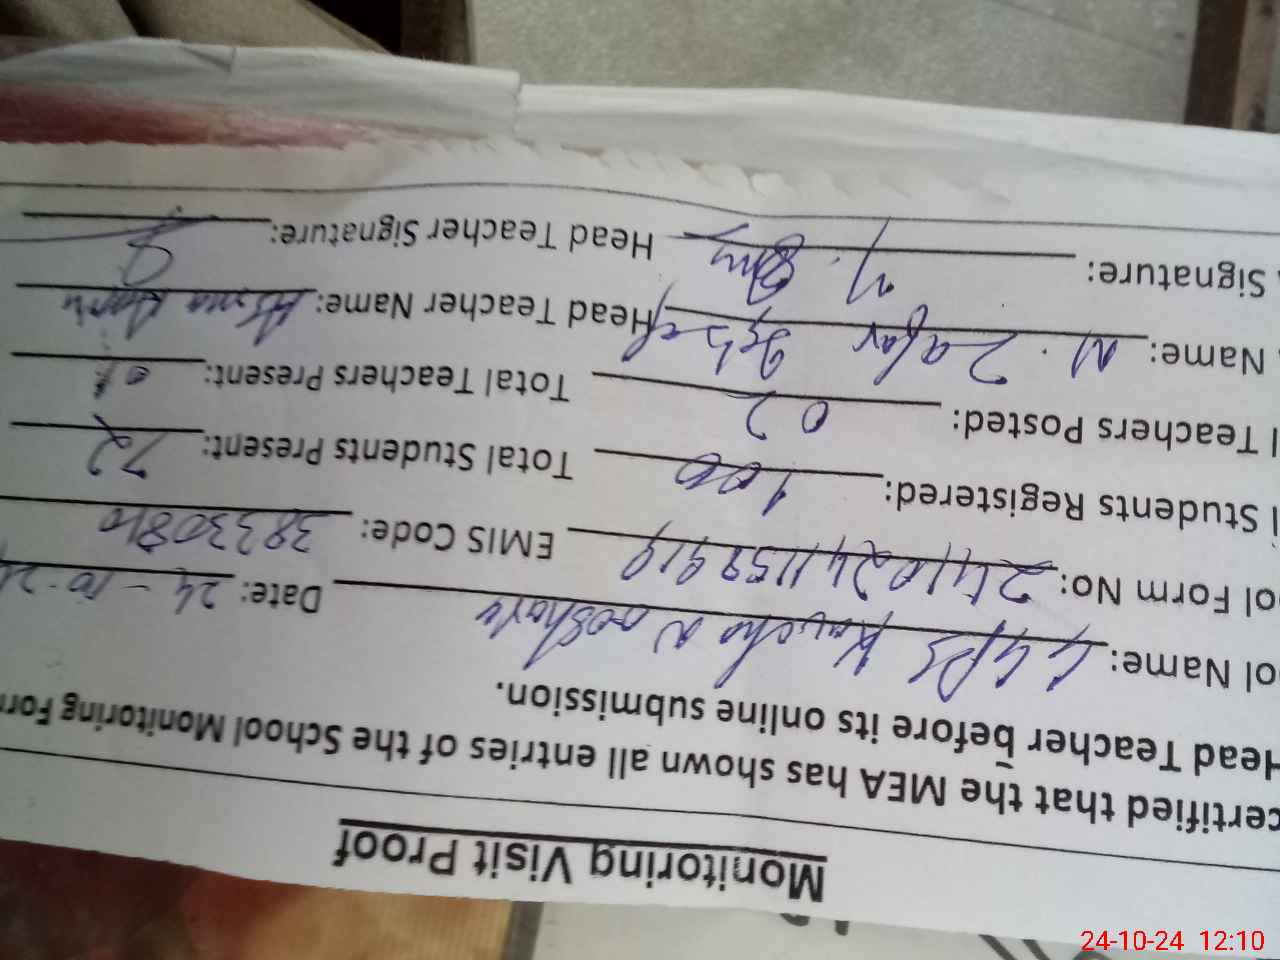 Monitoring Visit Proof
certified that the MEA has shown all entries of the School Monitoring For
Head Teacher before its online submission.
ol Name: GGPS Date: 24-10-24
ol Form No: EMIS Code: 38330810
l Students Registered: 100 Total Students Present: 72
l Teachers Posted: 02 Total Teachers Present: 01
Name: M. Zafar Iqbal Head Teacher Name: Asma
Signature: Head Teacher Signature:
24-10-24 12:10